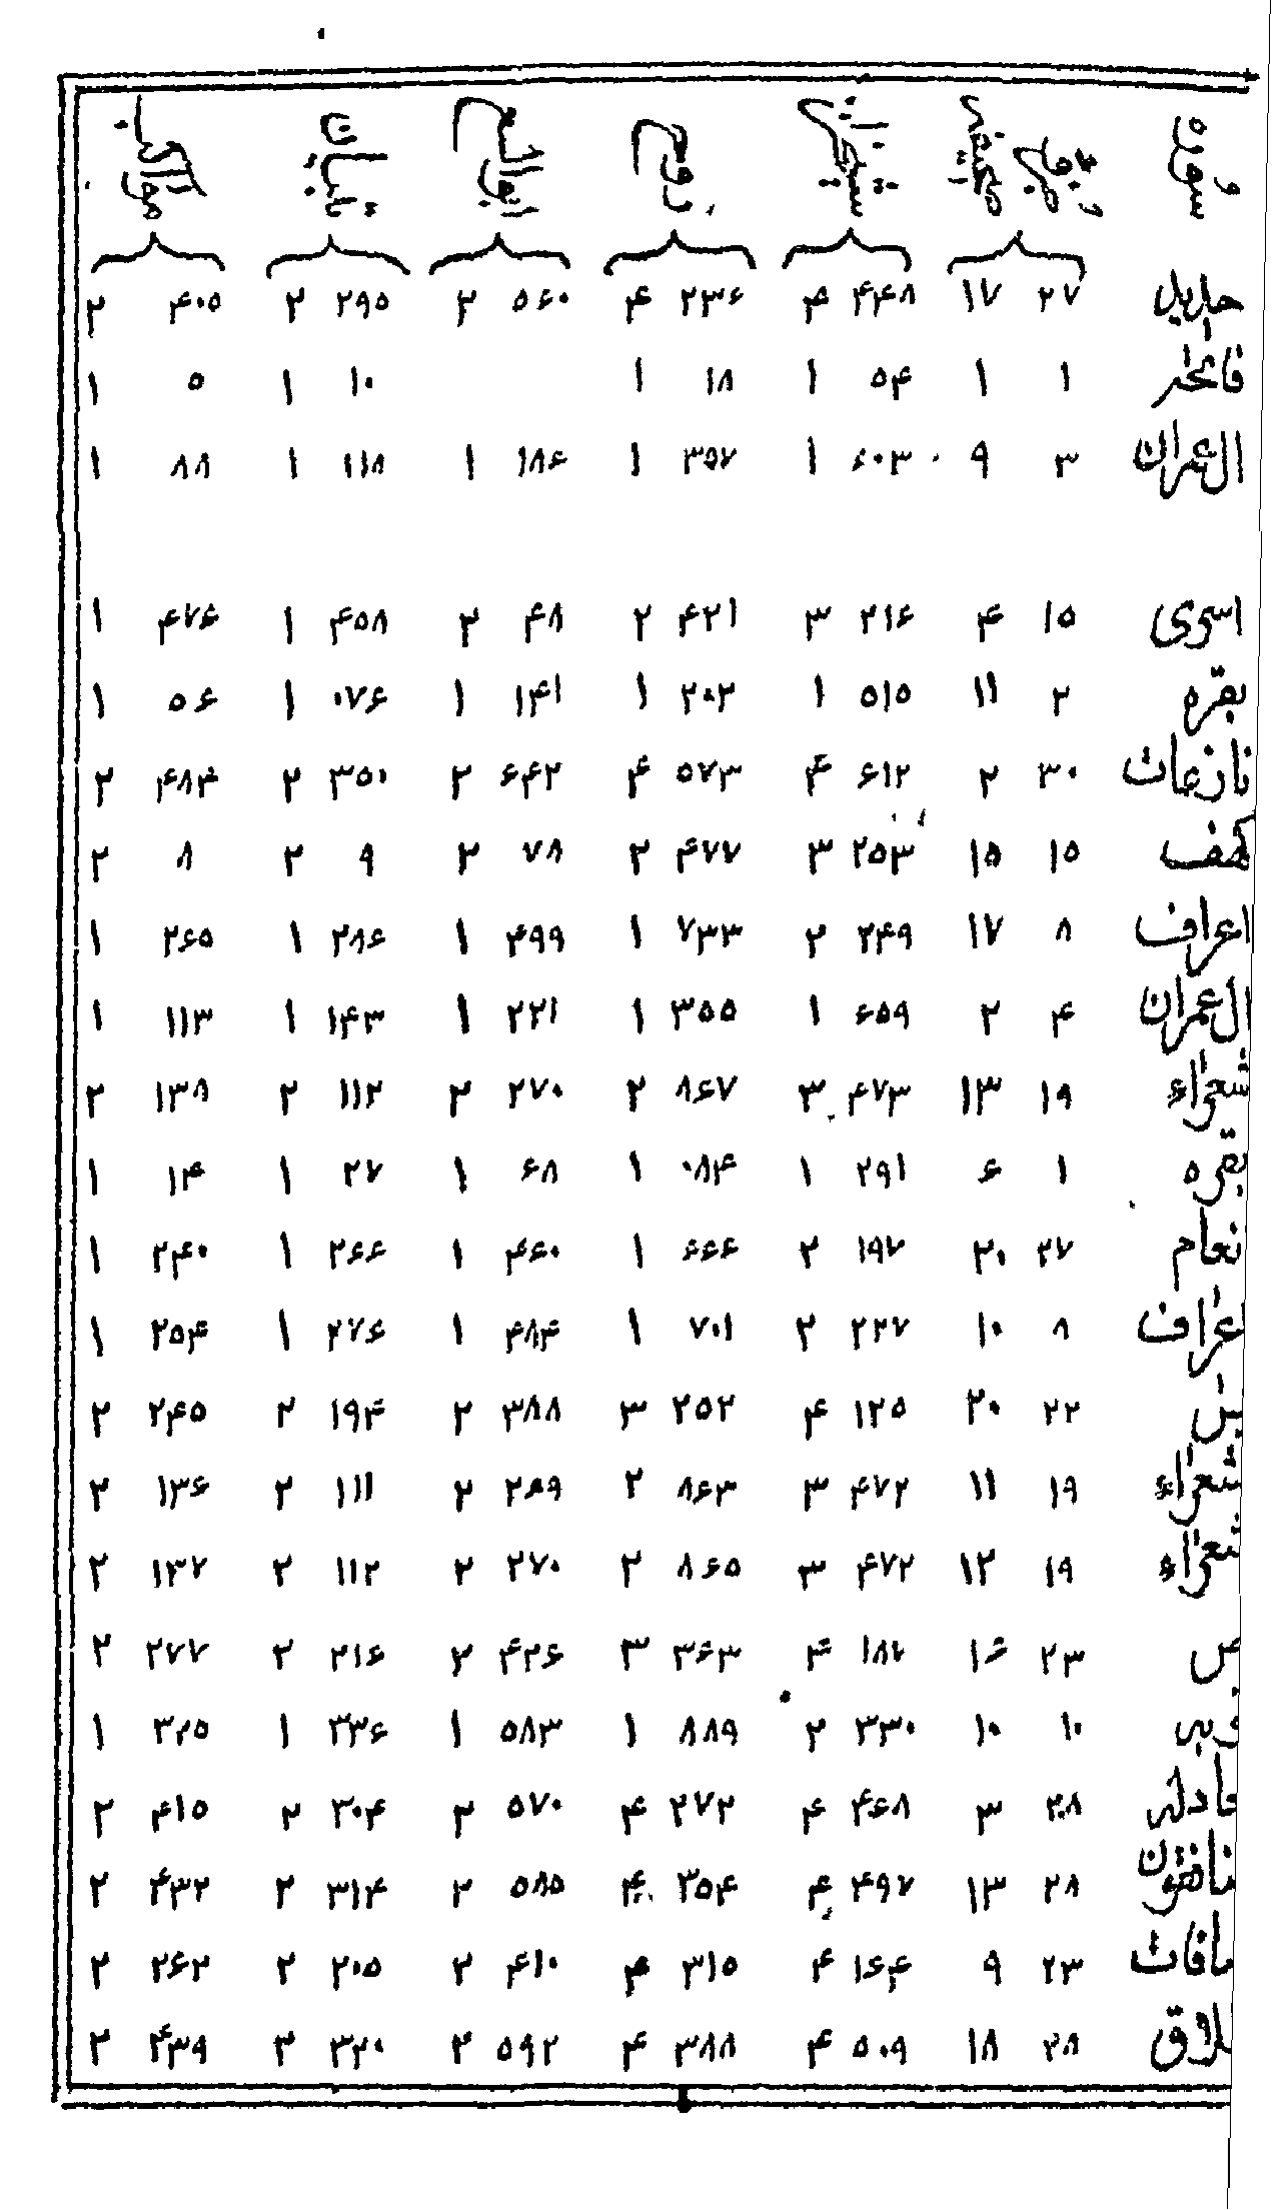 سوره
حدید ۲۷ ۱۷ ۴۴۸ ۴ ۲۳۶ ۴ ۵۶۰ ۲ ۲۹۵ ۲ ۴۰۵ ۲
فاتحه ۱ ۱ ۵۴ ۱ ۱۸ ۱ ۱۰ ۱ ۵ ۱
ال عمران ۳ ۹ ۶۰۳ ۱ ۳۵۷ ۱ ۱۸۶ ۱ ۱۱۸ ۱ ۸۸ ۱
اسری ۱۵ ۴ ۲۱۶ ۳ ۴۲۱ ۲ ۴۸ ۲ ۴۵۸ ۱ ۴۷۶ ۱
بقره ۲ ۱۱ ۵۱۵ ۱ ۲۰۲ ۱ ۱۴۱ ۱ ۰۷۶ ۱ ۵۶ ۱
نازعات ۳۰ ۲ ۶۱۲ ۴ ۵۷۳ ۴ ۶۴۲ ۲ ۳۵۰ ۲ ۴۸۴ ۲
کهف ۱۵ ۱۵ ۲۵۳ ۳ ۴۷۷ ۲ ۷۸ ۲ ۹ ۲ ۸ ۲
اعراف ۸ ۱۷ ۲۴۹ ۲ ۷۳۳ ۱ ۴۹۹ ۱ ۲۸۶ ۱ ۲۶۵ ۱
ال عمران ۴ ۲ ۶۵۹ ۱ ۳۵۵ ۱ ۲۲۱ ۱ ۱۴۳ ۱ ۱۱۳ ۱
شعراء ۱۹ ۱۳ ۴۷۳ ۳ ۸۶۷ ۲ ۲۷۰ ۲ ۱۱۲ ۲ ۱۳۸ ۲
بقره ۱ ۶ ۲۹۱ ۱ ۰۸۴ ۱ ۶۸ ۱ ۲۷ ۱ ۱۴ ۱
نعام ۲۷ ۲۰ ۱۹۷ ۲ ۶۶۶ ۱ ۴۶۰ ۱ ۲۶۶ ۱ ۲۴۰ ۱
اعراف ۸ ۱۰ ۲۲۷ ۲ ۷۰۱ ۱ ۴۸۴ ۱ ۲۷۶ ۱ ۲۵۴ ۱
یس ۲۲ ۲۰ ۱۲۵ ۴ ۲۵۲ ۳ ۳۸۸ ۲ ۱۹۴ ۲ ۲۴۵ ۲
شعراء ۱۹ ۱۱ ۴۷۲ ۳ ۸۶۳ ۲ ۲۶۹ ۲ ۱۱۱ ۲ ۱۳۶ ۲
شعراء ۱۹ ۱۲ ۴۷۲ ۳ ۸۶۵ ۲ ۲۷۰ ۲ ۱۱۲ ۲ ۱۳۷ ۲
ص ۲۳ ۱۶ ۱۸۷ ۴ ۳۶۳ ۳ ۴۲۶ ۲ ۲۱۶ ۲ ۲۷۷ ۲
وبه ۱۰ ۱۰ ۳۳۰ ۲ ۸۸۹ ۱ ۵۸۳ ۱ ۳۳۶ ۱ ۳۲۵ ۱
ادله ۲۸ ۳ ۴۶۸ ۴ ۲۷۲ ۴ ۵۷۰ ۲ ۳۰۴ ۲ ۴۱۵ ۲
نافقون ۲۸ ۱۳ ۴۹۷ ۴ ۳۵۴ ۴ ۵۸۵ ۲ ۳۱۴ ۲ ۴۳۲ ۲
افات ۲۳ ۹ ۱۶۴ ۴ ۳۱۵ ۳ ۴۱۰ ۲ ۲۰۵ ۲ ۲۶۲ ۲
لاق ۲۸ ۱۸ ۵۰۹ ۴ ۳۸۸ ۴ ۵۹۲ ۲ ۳۲۰ ۲ ۴۳۹ ۲